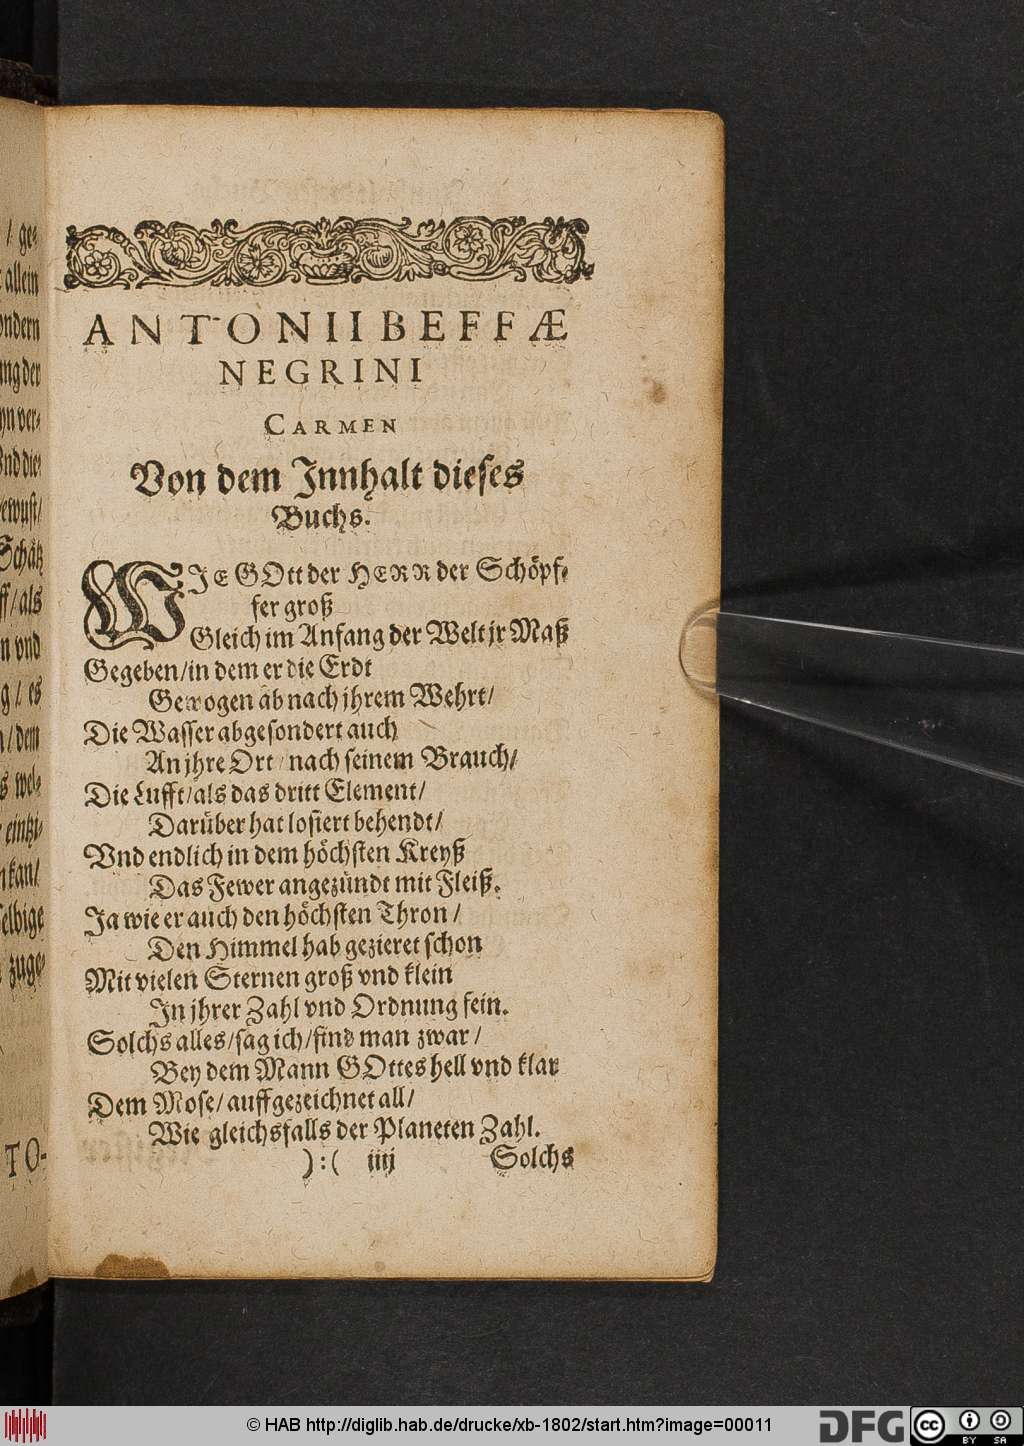 / ge⸗
allein
ondern
ung der
yn ver⸗
Vnd die⸗
gewust/
Schätz
ff/als
n vnd
g/ es
n/dem
s wel⸗
eintzi⸗
n kan/
selbige
zuge⸗
TO-
ANTONII BEFFÆ
NEGRINI
CARMEN
Von dem Innhalt dieses
Buchs.
WIE GOtt der HERR der Schöpf⸗
fer groß
Gleich im Anfang der Welt jr Maß
Gegeben/in dem er die Erdt
Gewogen ab nach jhrem Wehrt/
Die Wasser abgesondert auch
An jhre Ort/nach seinem Brauch/
Die Lufft/als das dritt Element/
Darüber hat losiert behendt/
Vnd endlich in dem höchsten Kreyß
Das Fewer angezündt mit Fleiß.
Ja wie er auch den höchsten Thron/
Den Himmel hab gezieret schon
Mit vielen Sternen groß vnd klein
In jhrer Zahl vnd Ordnung fein.
Solchs alles/sag ich/find man zwar/
Bey dem Mann GOttes hell vnd klar
Dem Mose/auffgezeichnet all/
Wie gleichsfalls der Planeten Zahl.
):( iiij Solchs
© HAB http://diglib.hab.de/drucke/xb-1802/start.htm?image=00011
DFG
cc BY SA